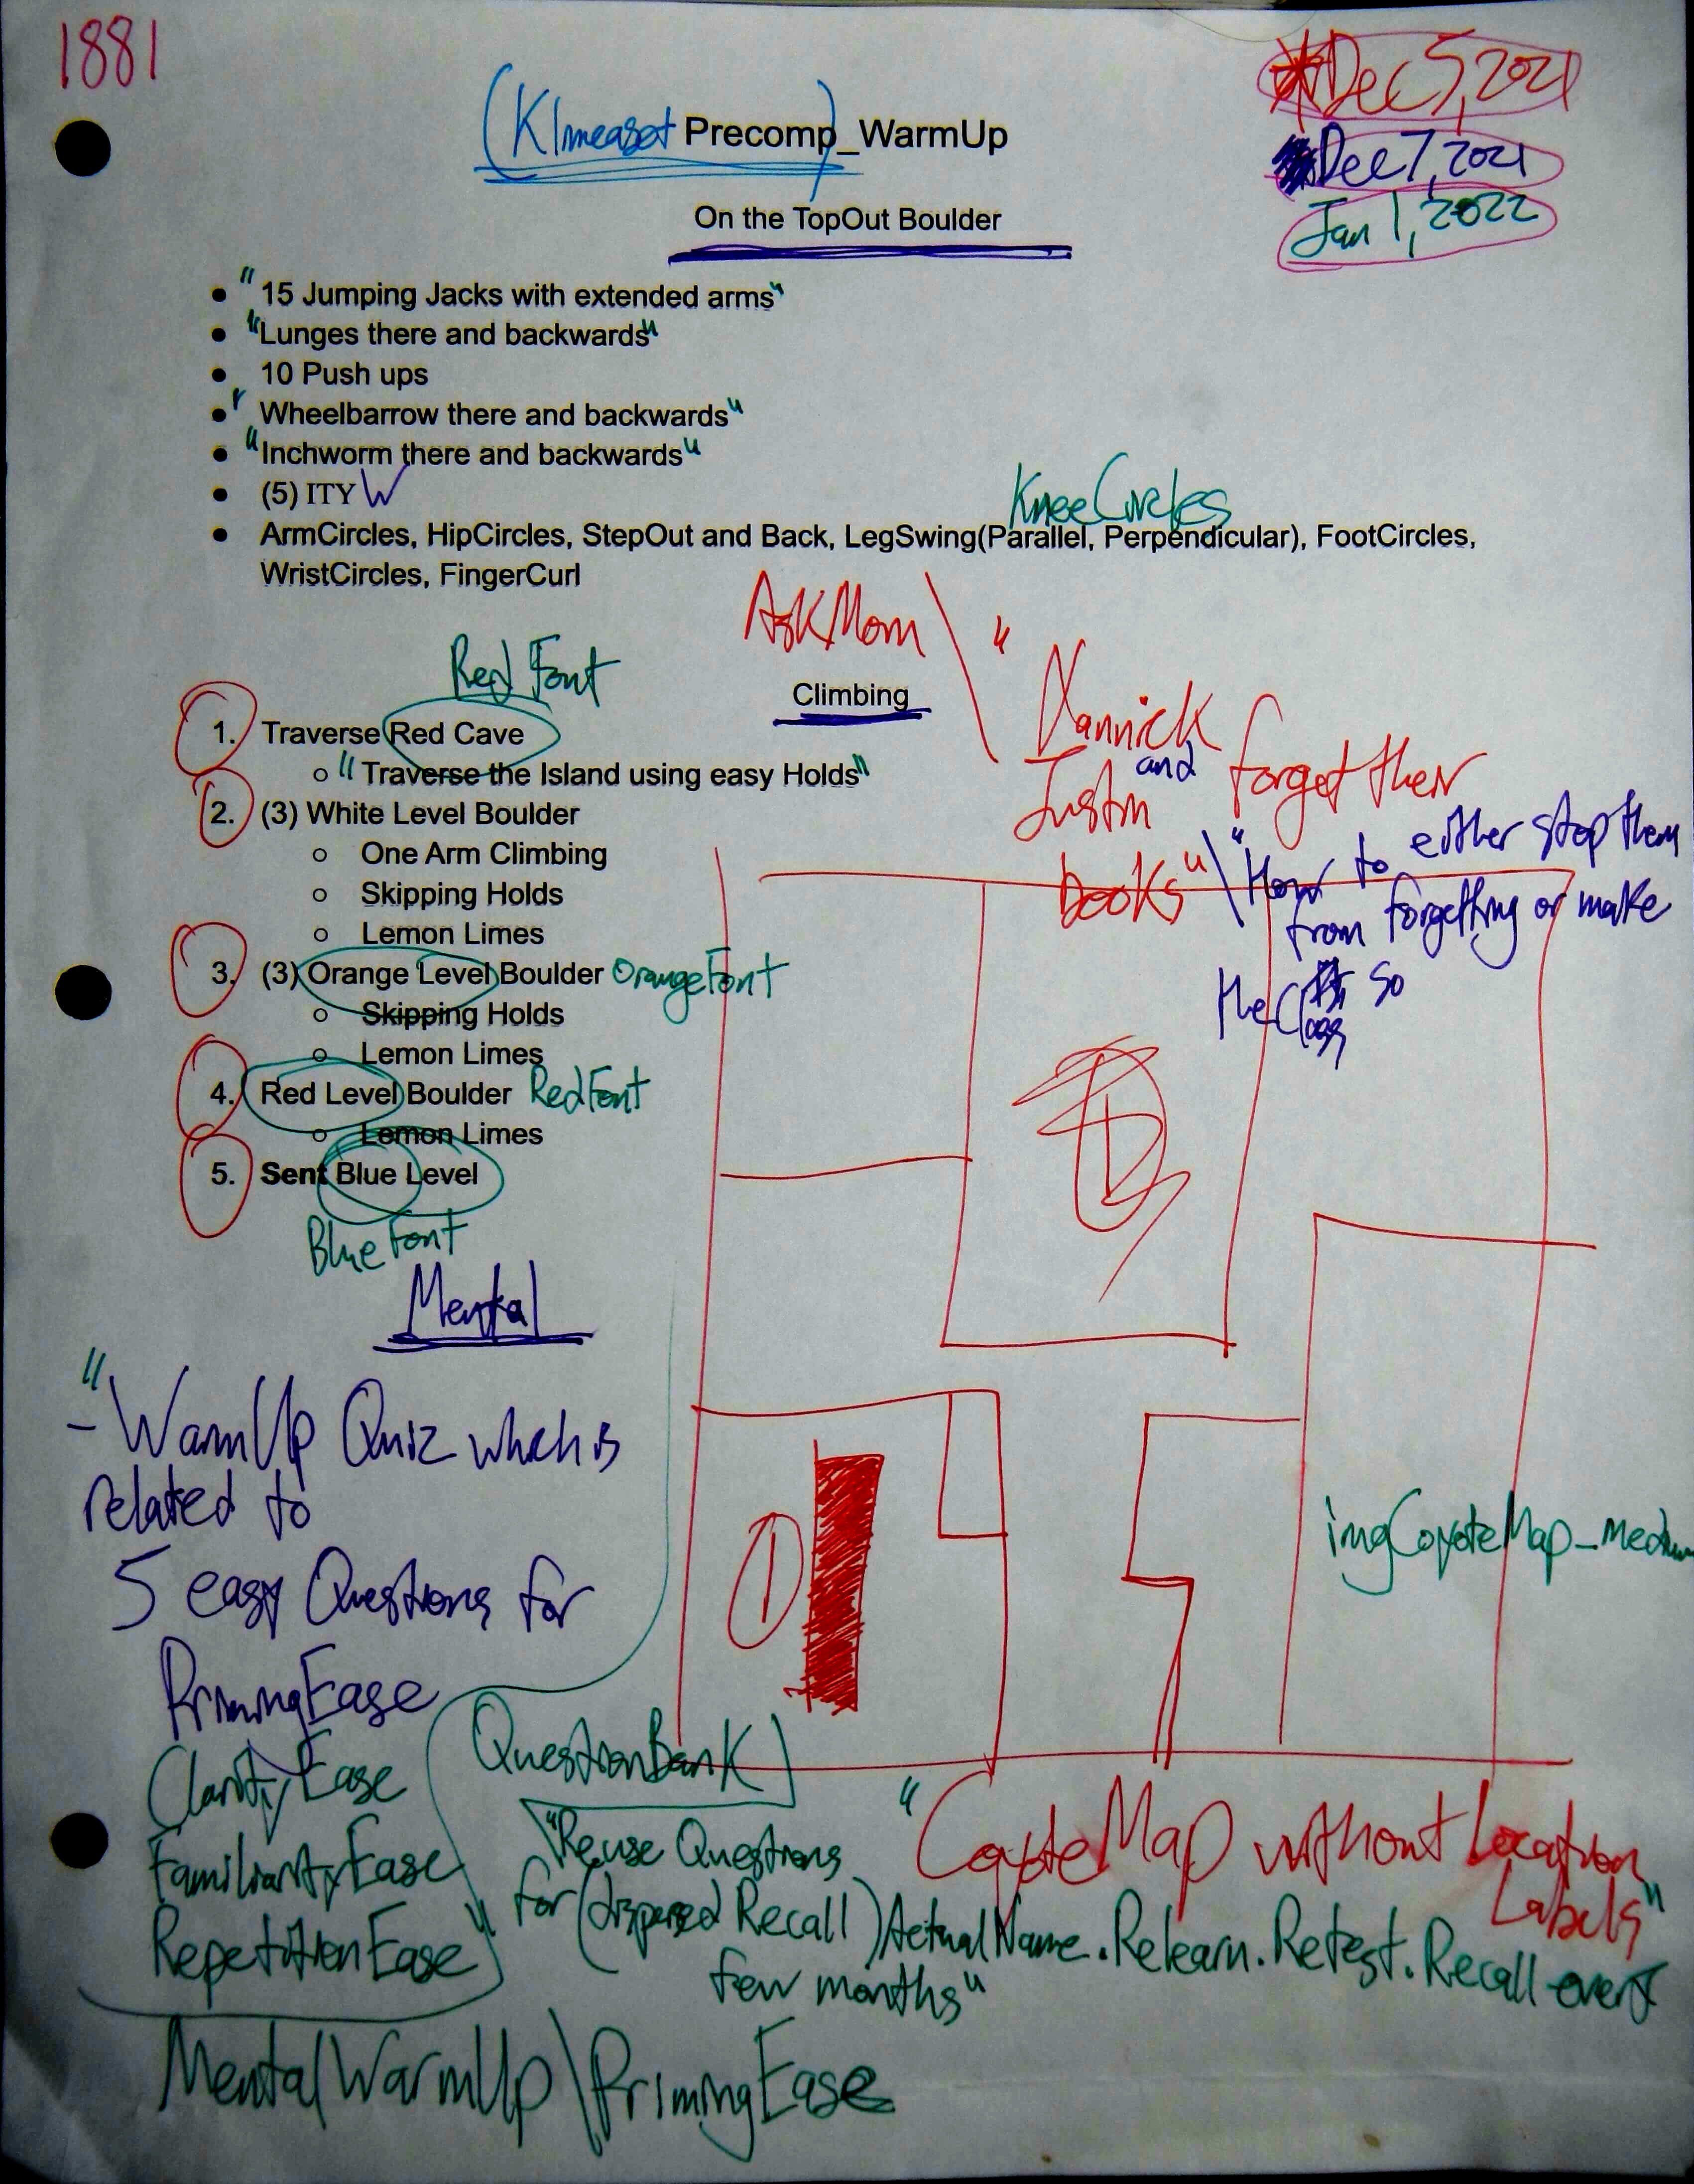 1881
*Dec 5, 2021
Dec 7, 2021
Jan 1, 2022
(Klmeaset Precomp)_WarmUp
On the TopOut Boulder
• "15 Jumping Jacks with extended arms"
• "Lunges there and backwards"
• 10 Push ups
• "Wheelbarrow there and backwards"
• "Inchworm there and backwards"
• (5) ITY W
KneeCircles
• ArmCircles, HipCircles, StepOut and Back, LegSwing(Parallel, Perpendicular), FootCircles,
WristCircles, FingerCurl
AskMom \ "Yannick
and
Justin forget their
books" \ "How to either stop them
from forgetting or make
the Class so
Climbing
Red Font
1. Traverse Red Cave
○ "Traverse the Island using easy Holds"
2. (3) White Level Boulder
○ One Arm Climbing
○ Skipping Holds
○ Lemon Limes
3. (3) Orange Level Boulder OrangeFont
○ Skipping Holds
○ Lemon Limes
4. Red Level Boulder RedFont
○ Lemon Limes
5. Sent Blue Level
Blue Font
Mental
"
- WarmUp Quiz which is
related to
5 easy Questions for
PrimingEase
ClarityEase
FamiliarityEase
RepetitionEase"
1
imgCoyoteMap_medium
"CoyoteMap without Location
Labels"
QuestionBank
"Reuse Questions
for (dispersed Recall) ActualName.Relearn.Retest.Recall over
few months"
MentalWarmUp\PrimingEase